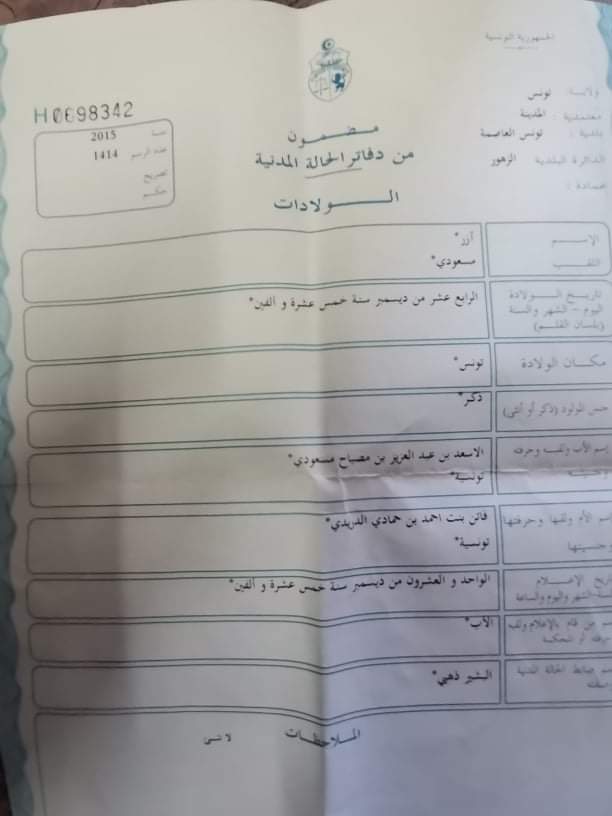 الجمهورية التونسية
ولاية: تونس
معتمدية: المدينة
بلدية: تونس العاصمة
الدائرة البلدية الزهور
عمادة:
H0698342
سنة 2015
عدد الرسم 1414
تصريح
حكم
مضمون
من دفاتر الحالة المدنية
الولادات
الإسم آزر*
اللقب مسعودي*
تاريخ الولادة
اليوم - الشهر والسنة الرابع عشر من ديسمبر سنة خمس عشرة و ألفين*
(بلسان القلم)
مكان الولادة تونس*
جنس المولود (ذكر أو أنثى) ذكر*
إسم الأب ولقبه وحرفته الاسعد بن عبد العزيز بن مصباح مسعودي*
تونسية*
إسم الأم ولقبها وحرفتها فاتن بنت احمد بن حمادي الدريدي*
وجنسيتها تونسية*
تاريخ الإعلام الواحد و العشرون من ديسمبر سنة خمس عشرة و ألفين*
السنة-الشهر واليوم والساعة
إسم من قام بالإعلام ولقبه الأب*
وحرفته أو المحكمة
إسم ضابط الحالة المدنية البشير ذهبي*
وصفته
الملاحظات
لا شئ